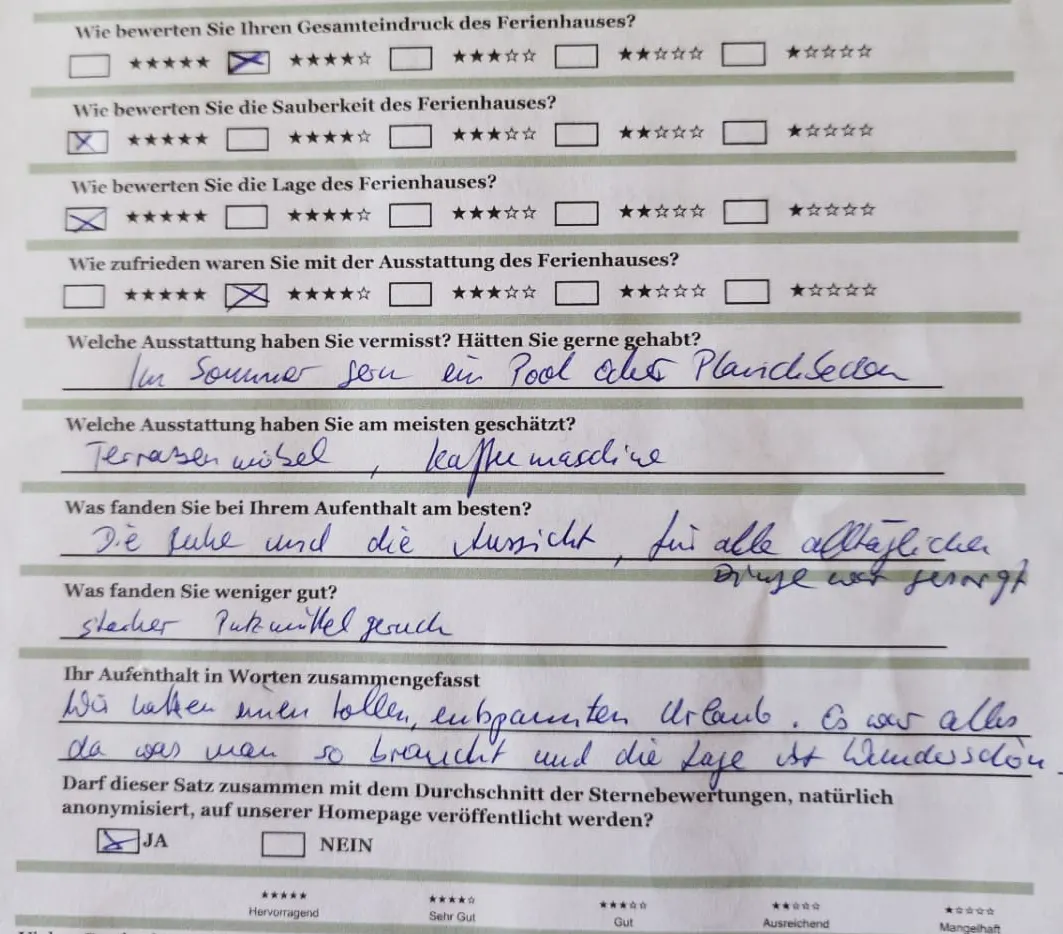 Wie bewerten Sie Ihren Gesamteindruck des Ferienhauses?
★★★★★ ★★★★☆ ★★★☆☆ ★★☆☆☆ ★☆☆☆☆
Wie bewerten Sie die Sauberkeit des Ferienhauses?
★★★★★ ★★★★☆ ★★★☆☆ ★★☆☆☆ ★☆☆☆☆
Wie bewerten Sie die Lage des Ferienhauses?
★★★★★ ★★★★☆ ★★★☆☆ ★★☆☆☆ ★☆☆☆☆
Wie zufrieden waren Sie mit der Ausstattung des Ferienhauses?
★★★★★ ★★★★☆ ★★★☆☆ ★★☆☆☆ ★☆☆☆☆
Welche Ausstattung haben Sie vermisst? Hätten Sie gerne gehabt?
Im Sommer gern ein Pool oder Planschbecken
Welche Ausstattung haben Sie am meisten geschätzt?
Terrassenmöbel, Kaffeemaschine
Was fanden Sie bei Ihrem Aufenthalt am besten?
Die Ruhe und die Aussicht, für alle alltäglichen
Dinge war gesorgt
Was fanden Sie weniger gut?
starker Putzmittelgeruch
Ihr Aufenthalt in Worten zusammengefasst
Wir hatten einen tollen, entspannten Urlaub. Es war alles
da was man so braucht und die Lage ist wunderschön.
Darf dieser Satz zusammen mit dem Durchschnitt der Sternebewertungen, natürlich
anonymisiert, auf unserer Homepage veröffentlicht werden?
JA NEIN
★★★★★ ★★★★☆ ★★★☆☆ ★★☆☆☆ ★☆☆☆☆
Hervorragend Sehr Gut Gut Ausreichend Mangelhaft